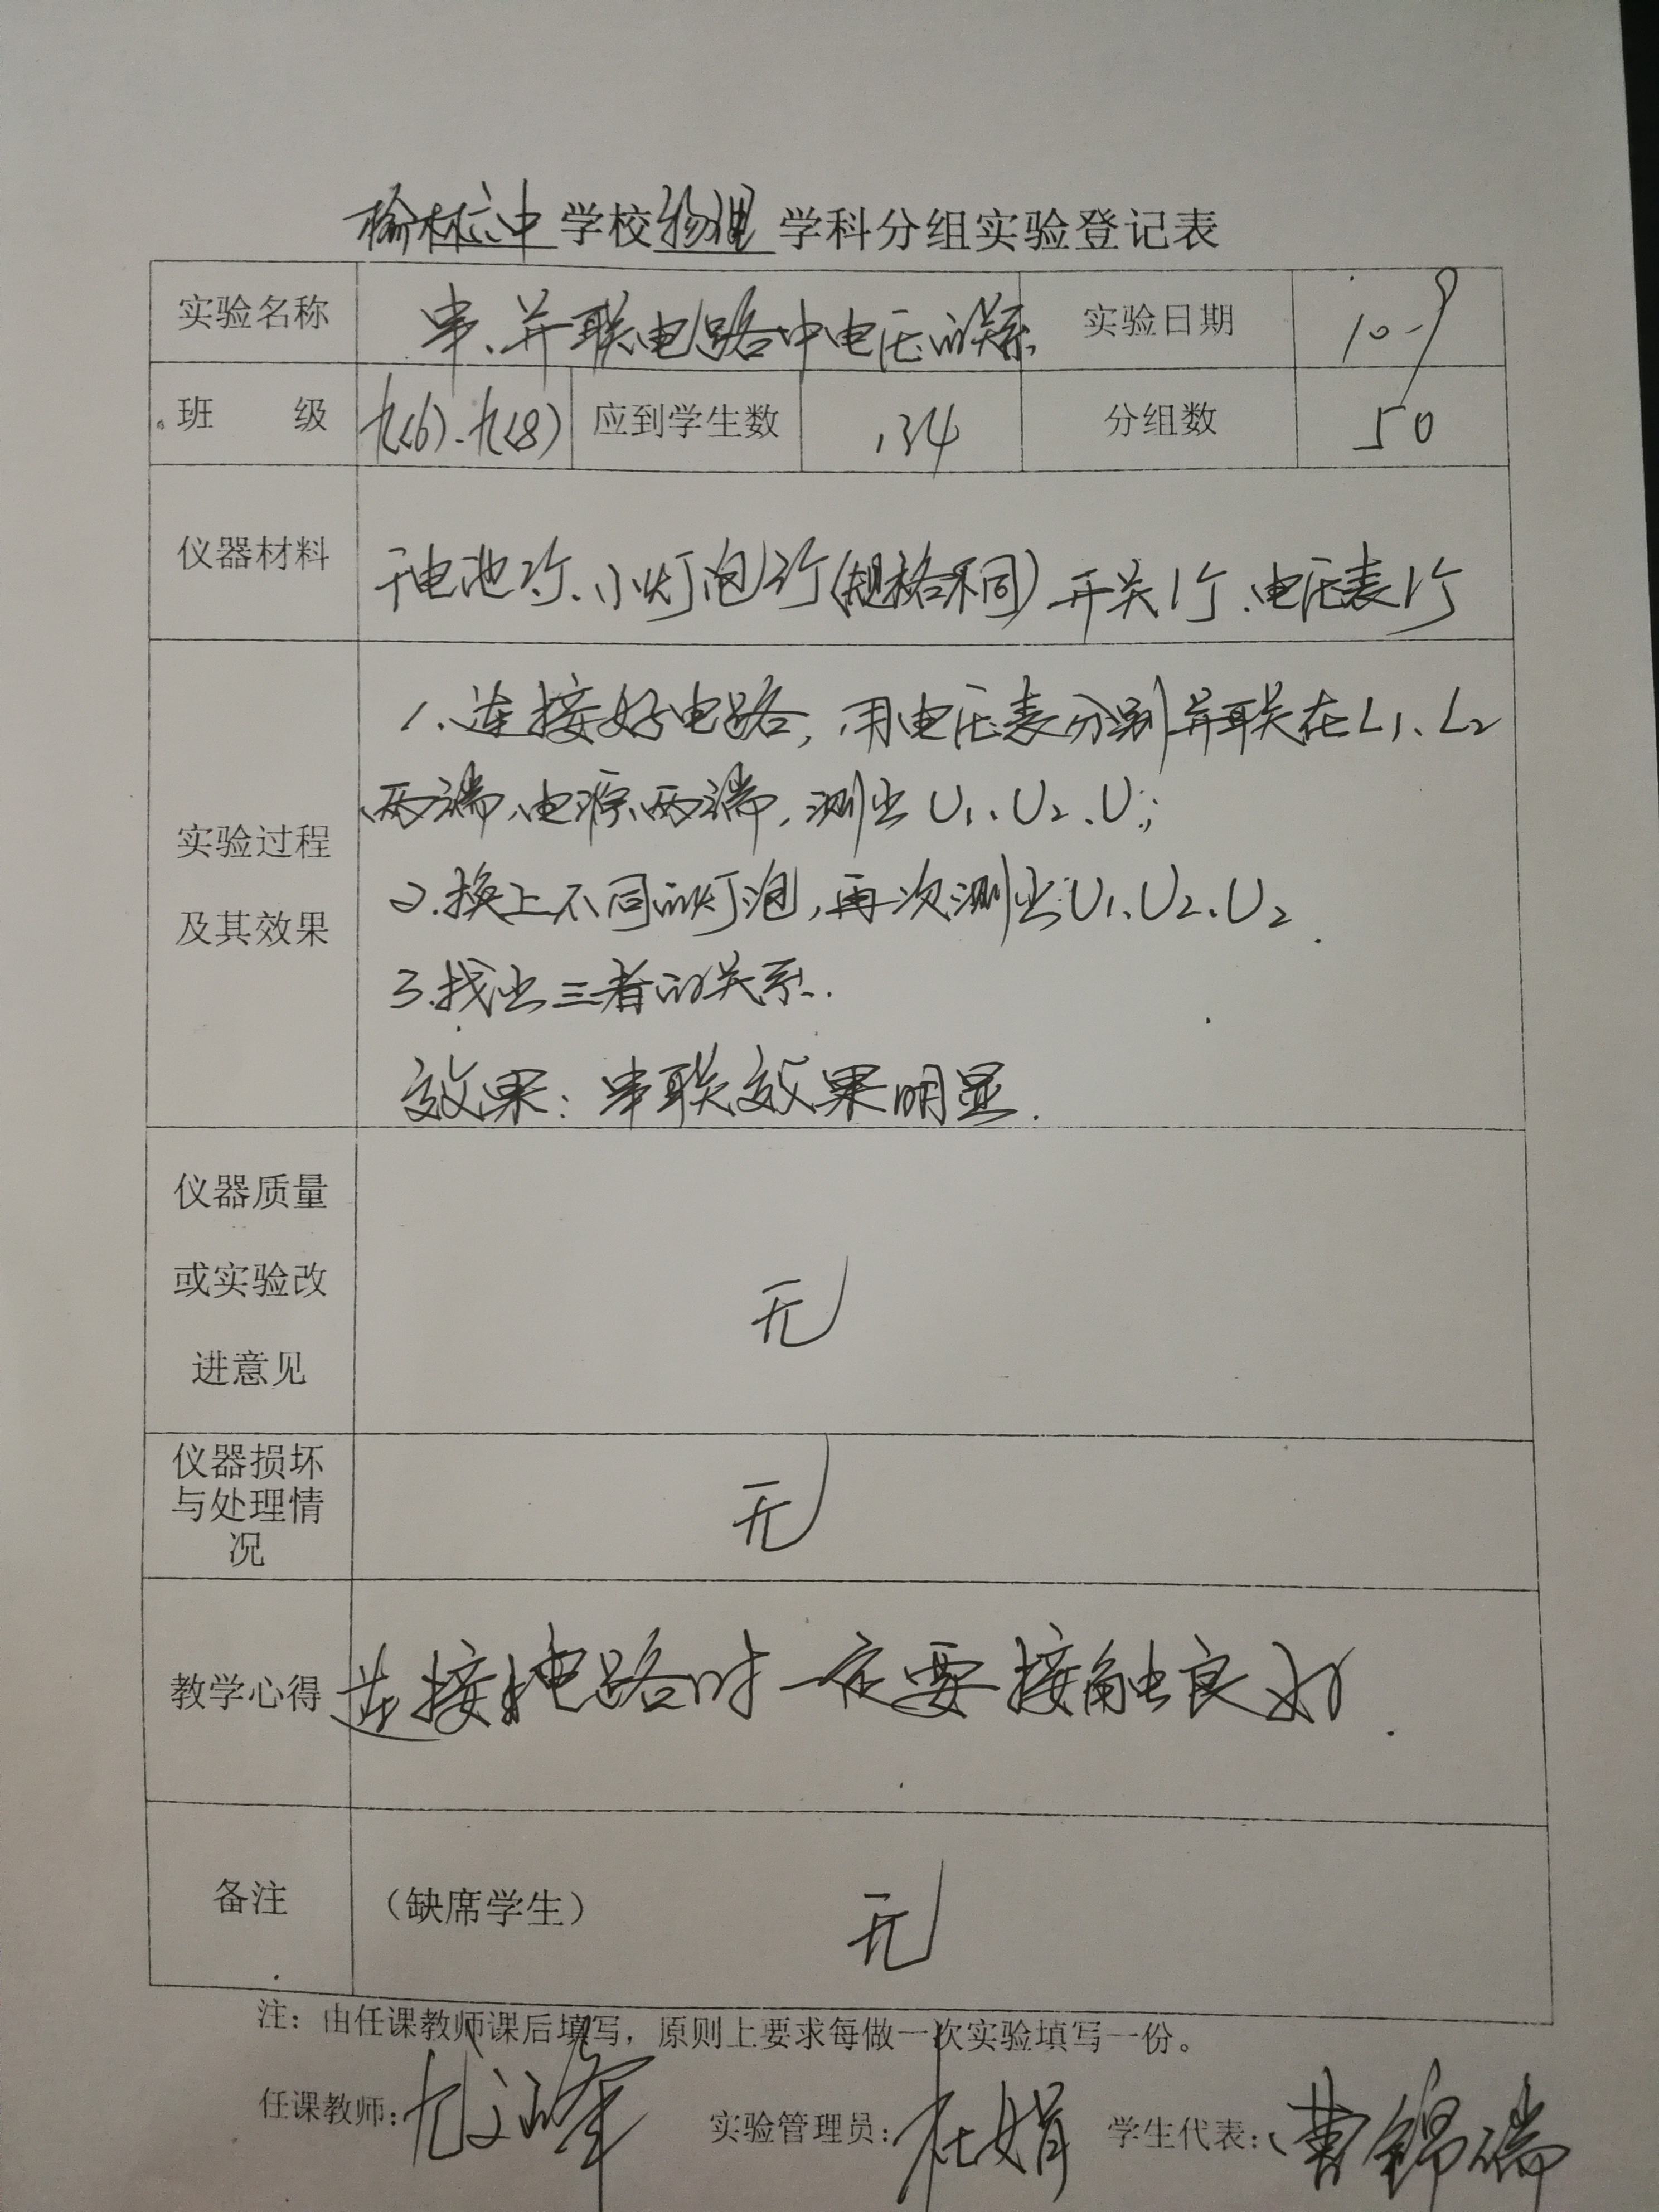 榆林六中 学校 物理 学科分组实验登记表
实验名称 串、并联电路中电压的关系 实验日期 10-9
班 级 九(6)-九(8) 应到学生数 134 分组数 50
仪器材料 干电池2个、小灯泡2个(规格不同) 开关1个、电压表1个
1、连接好电路,用电压表分别并联在L1、L2
两端、电源两端,测出U1、U2、U;
实验过程
及其效果
2.换上不同的灯泡,再次测出U1、U2、U2.
3.找出三者的关系.
效果:串联效果明显.
仪器质量
或实验改
进意见
无
仪器损坏
与处理情
况
无
教学心得 连接电路时一定要接触良好.
备注 (缺席学生) 无
注:由任课教师课后填写,原则上要求每做一次实验填写一份。
任课教师: 实验管理员: 学生代表:曹锦瑞